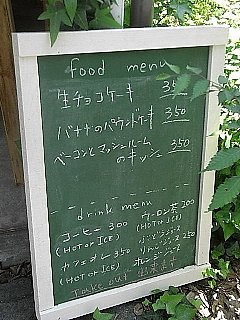 food menu
生チョコケーキ 350
バナナのパウンドケーキ 350
ベーコンとマッシュルーム
のキッシュ 350
drink menu
コーヒー 300
(HOT or ICE)
カフェオレ 350
(HOT or ICE)
ウーロン茶 300
(HOT or ICE)
ジュース 250
Take out 出来ます